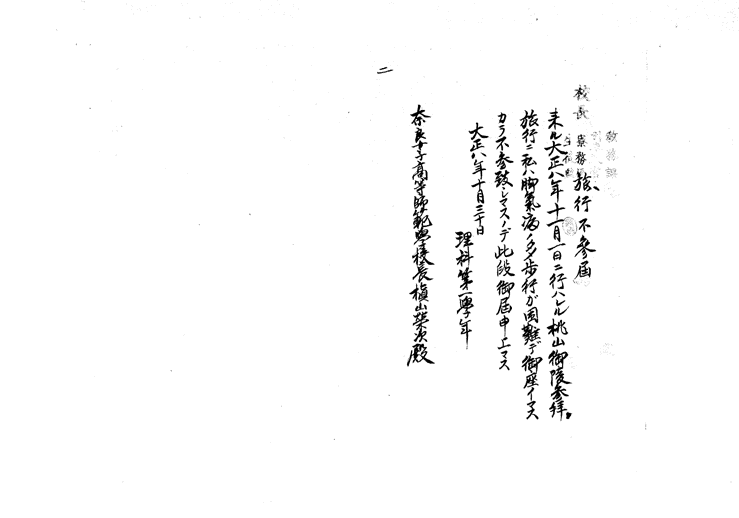 教務課
校長
寮務
旅行不參届
来ル大正八年十一月一日ニ行ハレル桃山御陵参拝
旅行ニ私ハ脚氣病ノタメ歩行ガ困難デ御座イマス
カラ不参致シマスノデ此段御届申上マス
大正八年十月三十日
理科第一學年
奈良女子高等師範學校長槇山榮次殿
二